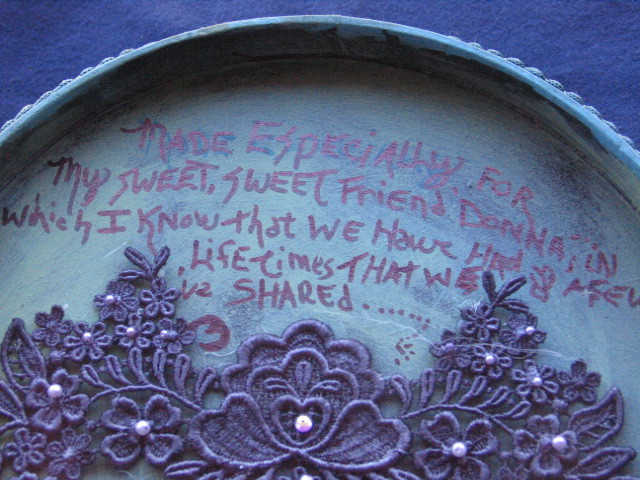 MADE EspeciAlly FOR
My SWEET, SWEET Friend DONNA, iN
which I KNow that WE HAvE HAD A FEW
LiFEtimes THAT WE
SHARED.......